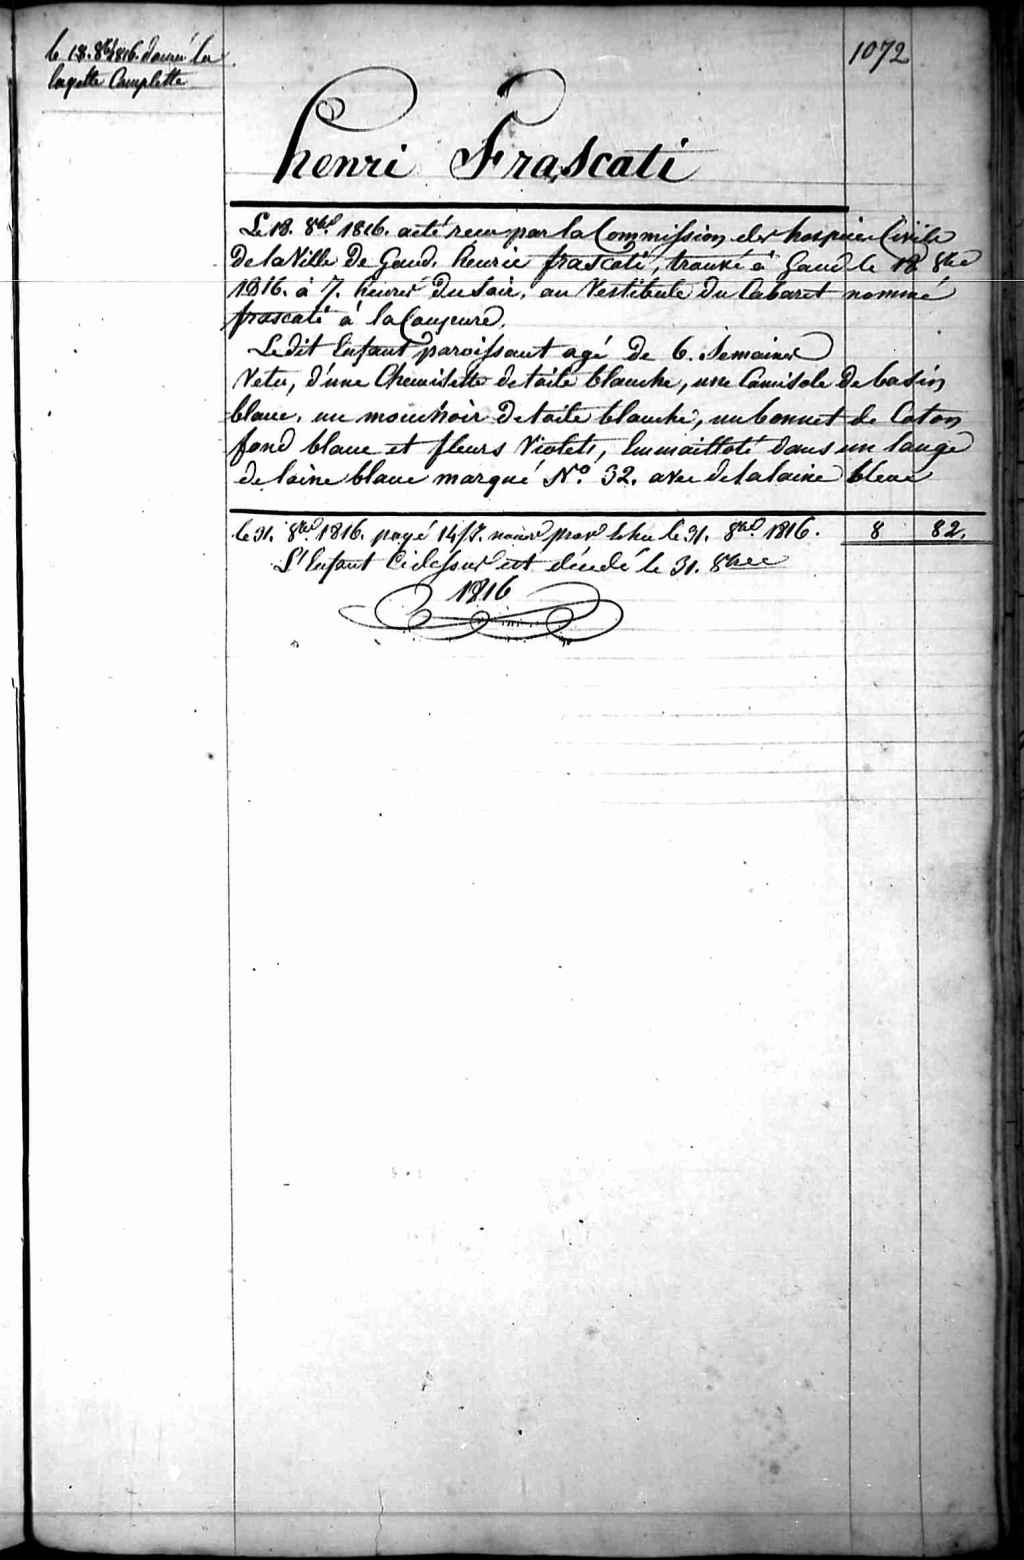 le 18. 8bre 1816. donné la
layette Complette
1072
henri Frascati
Le 18. 8bre 1816. a été recu par la Commission des hospices Civils
de la Ville De Gand. henrie frascati, trouvé à Gand le 18 8bre
1816. à 7. heures Du Soir, au Vestibule du Cabaret nommé
frascati à la Coupure.
Le dit Enfant paroissant agé de 6. Semaines
Vetu, d'une Chemisette de toile blanche, une Camisole de basin
blanc, un mouchoir de toile blanche, un bonnet de Coton
fond blanc et fleurs Violets, Emmailloté dans un lange
de laine blanc marqué No. 32. avec de la laine bleue
le 31. 8bre 1816. payé 14 le 31. 8bre 1816. 8 82.
L'Enfant Cidessus est décédé le 31. 8bre
1816